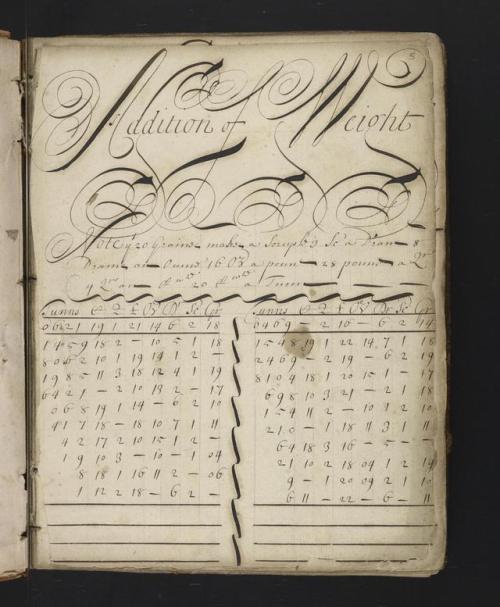 5
Addition of Weight
Note yt 20 Grains make a Scruple 3 Sc a Dram 8
Drams an Ounc 16 Oz a poun 28 pound a Qr
4 Qrs an 20 a Tunn
Tunns C Q £ Oz Dr Sc Gr
0621 19 1 21 14 6 2 18
1459 18 2 — 10 5 1 18
8062 10 1 19 14 1 2 —
1985 11 3 18 12 4 1 19
6421 — 2 10 13 2 — 17
068 19 1 14 — 6 2 10
417 18 — 18 10 7 1 11
42 17 2 10 15 1 2 —
19 10 3 — 10 — 1 04
8 18 1 16 11 2 — 06
1 12 2 18 — 6 2 —
Tunns C Q £ Oz Dr Sc Gr
0469 — 2 16 — 6 2 14
1548 19 1 22 14 7 1 18
2469 — 2 19 — 6 2 19
8104 18 1 20 15 1 — 17
698 10 3 21 — 2 1 18
154 11 2 — 10 1 2 10
210 — 1 18 11 3 1 11
64 18 3 16 — 5 — —
21 10 2 18 04 1 2 14
9 — 1 20 09 2 1 10
6 11 — 22 — 6 — 11